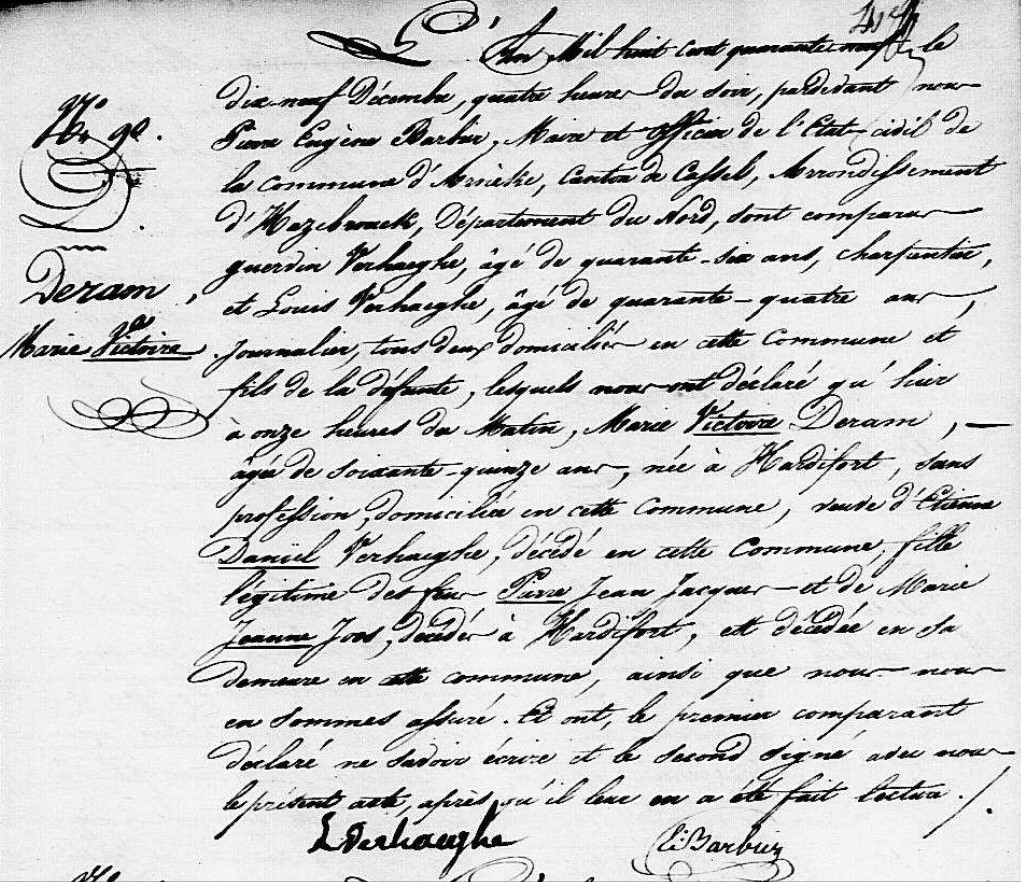 L'An Mil huit cent quarante neuf, le
dix-neuf Décembre, quatre heures du soir, pardevant nous
Pierre Eugène Barbier, Maire et officier de l'Etat-civil de
la commune d'Arnèke, Canton de Cassel, Arrondissement
d'Hazebrouck, Département du Nord, sont comparus
guerdin Verhaeghe, âgé de quarante-six ans, charpentier,
et Louis Verhaeghe, âgé de quarante-quatre ans,
Journalier, tous deux domiciliés en cette Commune et
fils de la défunte, lesquels nous ont déclaré qu'hier
à onze heures du Matin, Marie Victoire Deram,
âgée de soixante-quinze ans, née à Hardifort, sans
profession, domiciliée en cette Commune, veuve d'Etienne
Daniel Verhaeghe, décédé en cette Commune, fille
légitime des feus Pierre Jean Jacques et de Marie
Jeanne Joos, décédés à Hardifort, est décédée en sa
demeure en cette commune, ainsi que nous nous
en sommes assuré. Et ont, le premier comparant
déclaré ne savoir écrire et le second signé avec nous
le présent acte, après qu'il leur en a été fait lecture ./.
L Verhaeghe
E: Barbier
Nº 90.
Deram,
Marie Victoire.
Nº